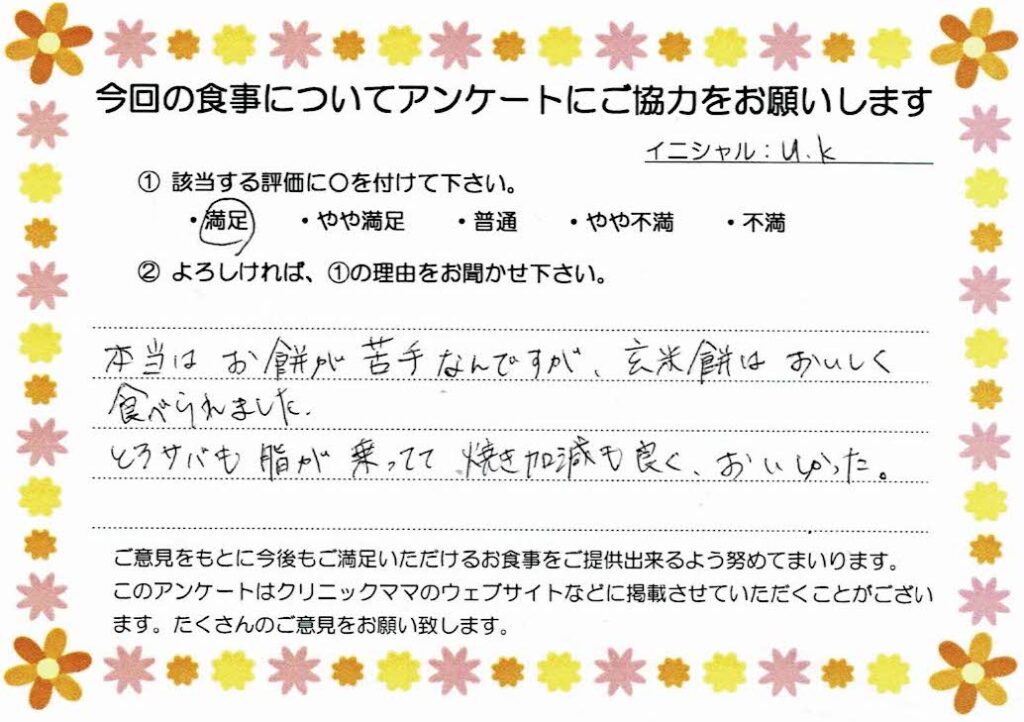 今回の食事についてアンケートにご協力をお願いします
イニシャル：U.k
① 該当する評価に〇を付けて下さい。
・満足 ・やや満足 ・普通 ・やや不満 ・不満
② よろしければ、①の理由をお聞かせ下さい。
本当は お餅が 苦手なんですが、玄米餅は おいしく
食べられました.
とろサバも 脂が 乗ってて 焼き加減も良く、おいしかった。
ご意見をもとに今後もご満足いただけるお食事をご提供出来るよう努めてまいります。
このアンケートはクリニックママのウェブサイトなどに掲載させていただくことがござい
ます。たくさんのご意見をお願い致します。